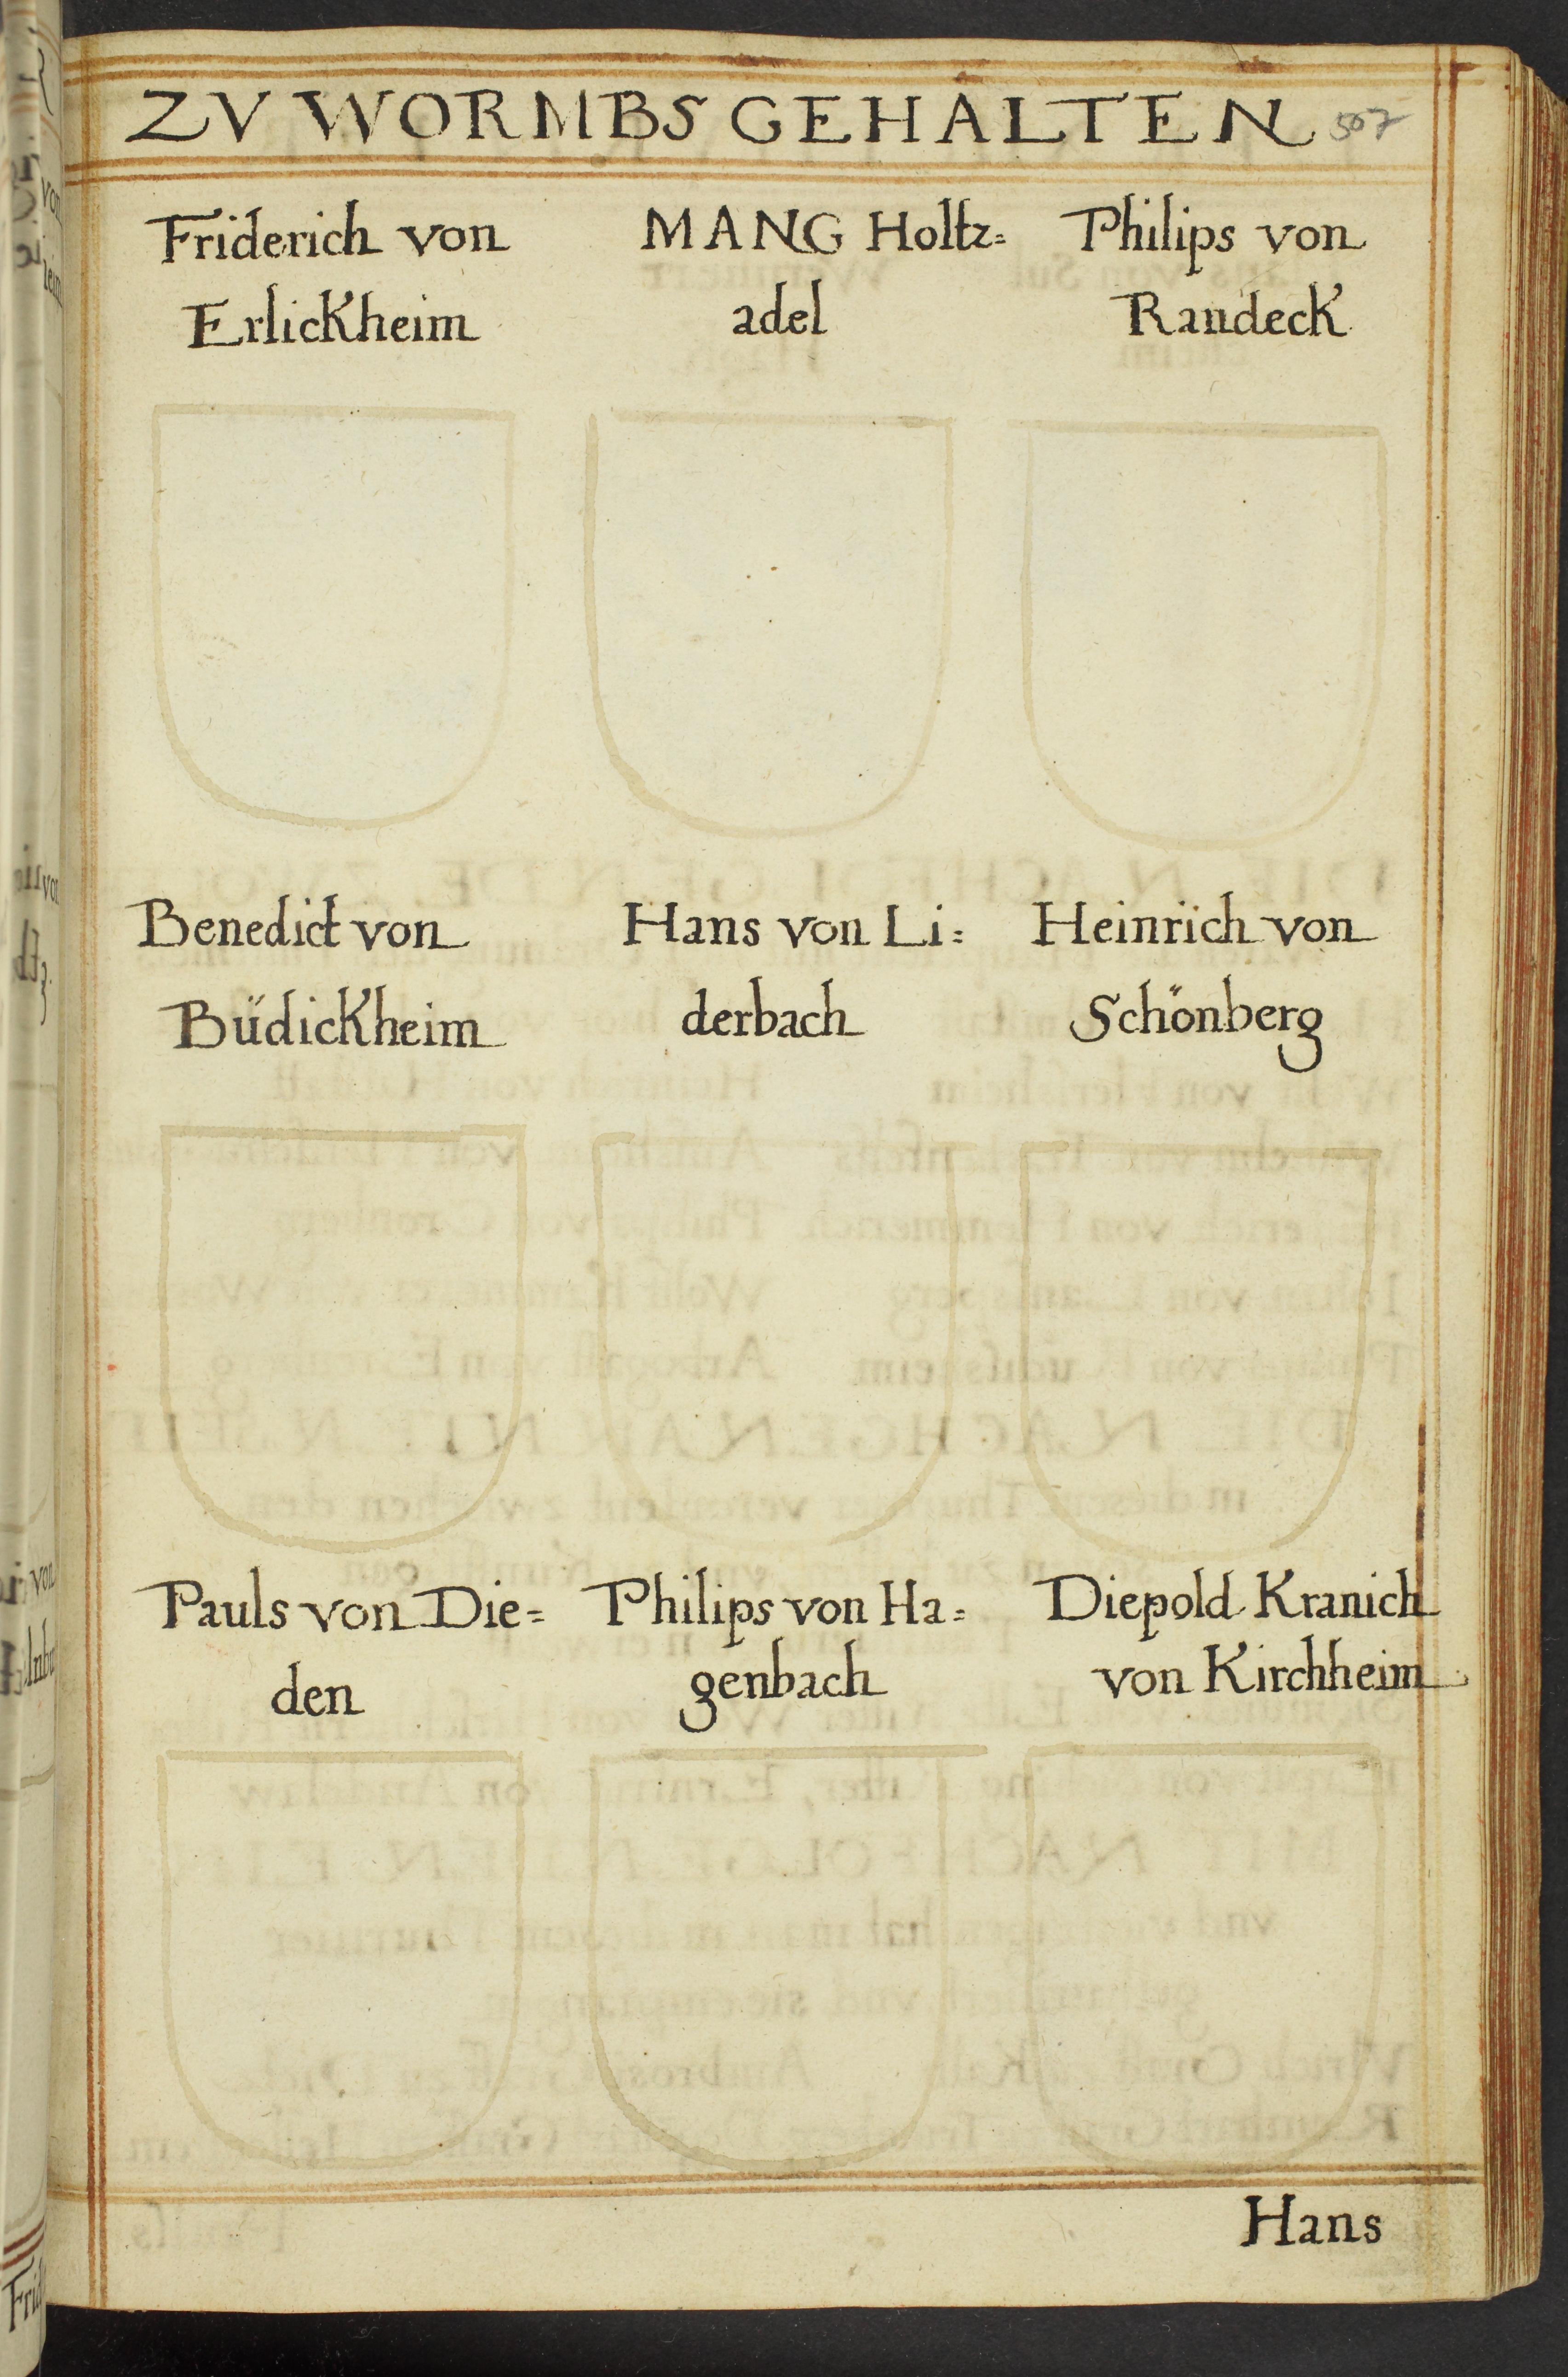 ZV WORMBS GEHALTEN 507
Friderich von
Erlickheim
MANG Holtz=
adel
Philips von
Randeck
Benedict von
Büdickheim
Hans von Li=
derbach
Heinrich von
Schönberg
Pauls von Die=
den
Philips von Ha=
genbach
Diepold Kranich
von Kirchheim
Hans